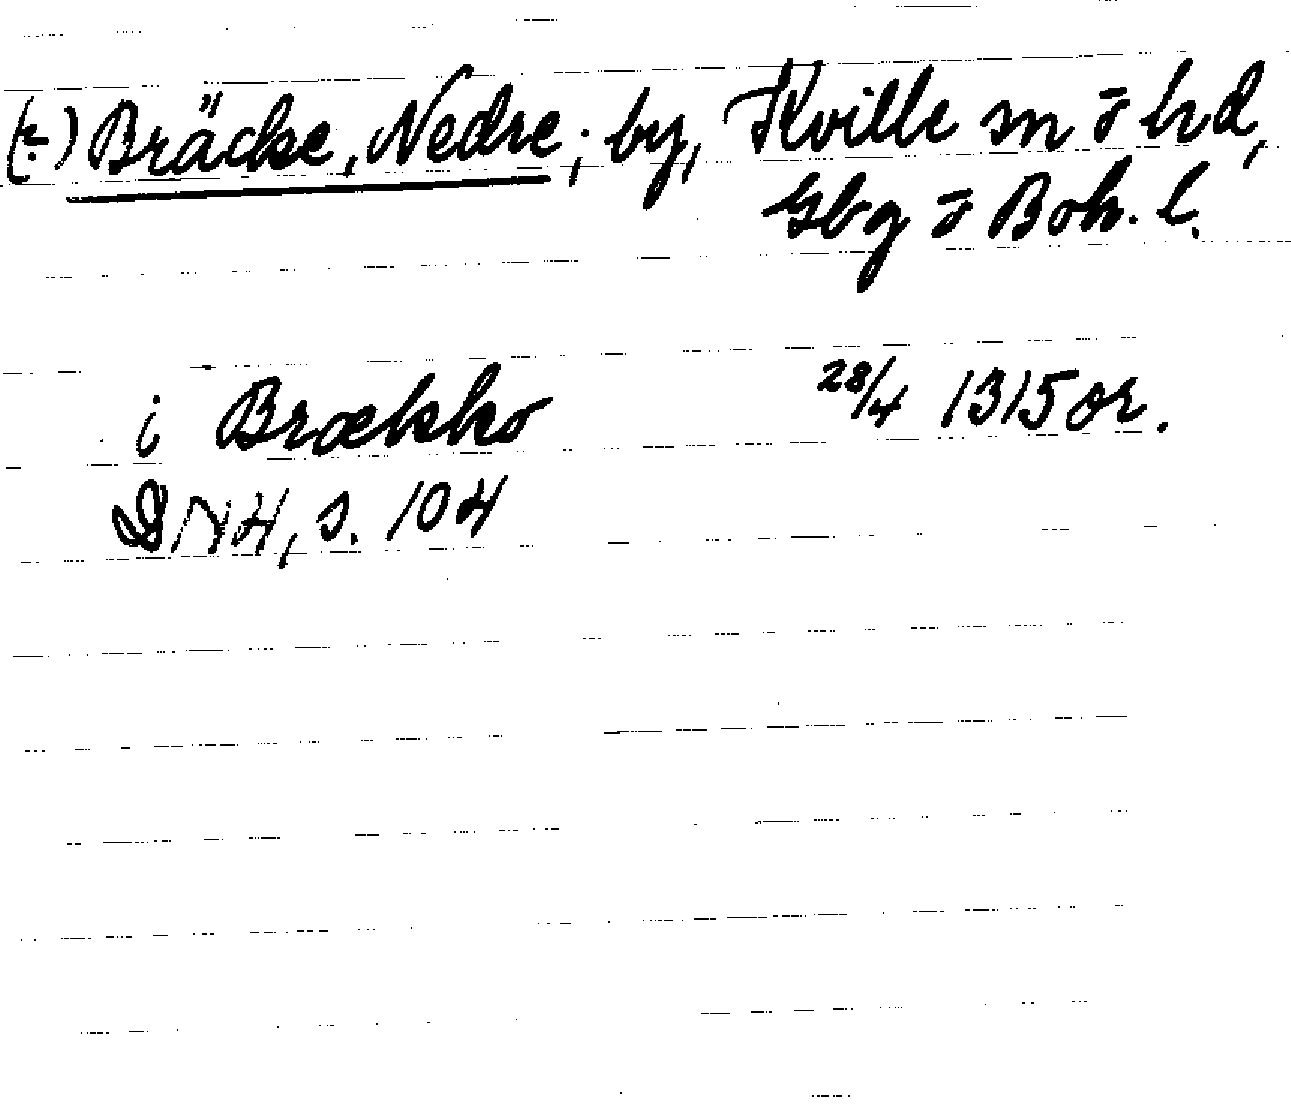 (÷) Bräcke, Nedre; by, Kville sn o hd,
Gbg o Boh. l.
i Brækko 28/4 1315 or.
DN 4, s. 104